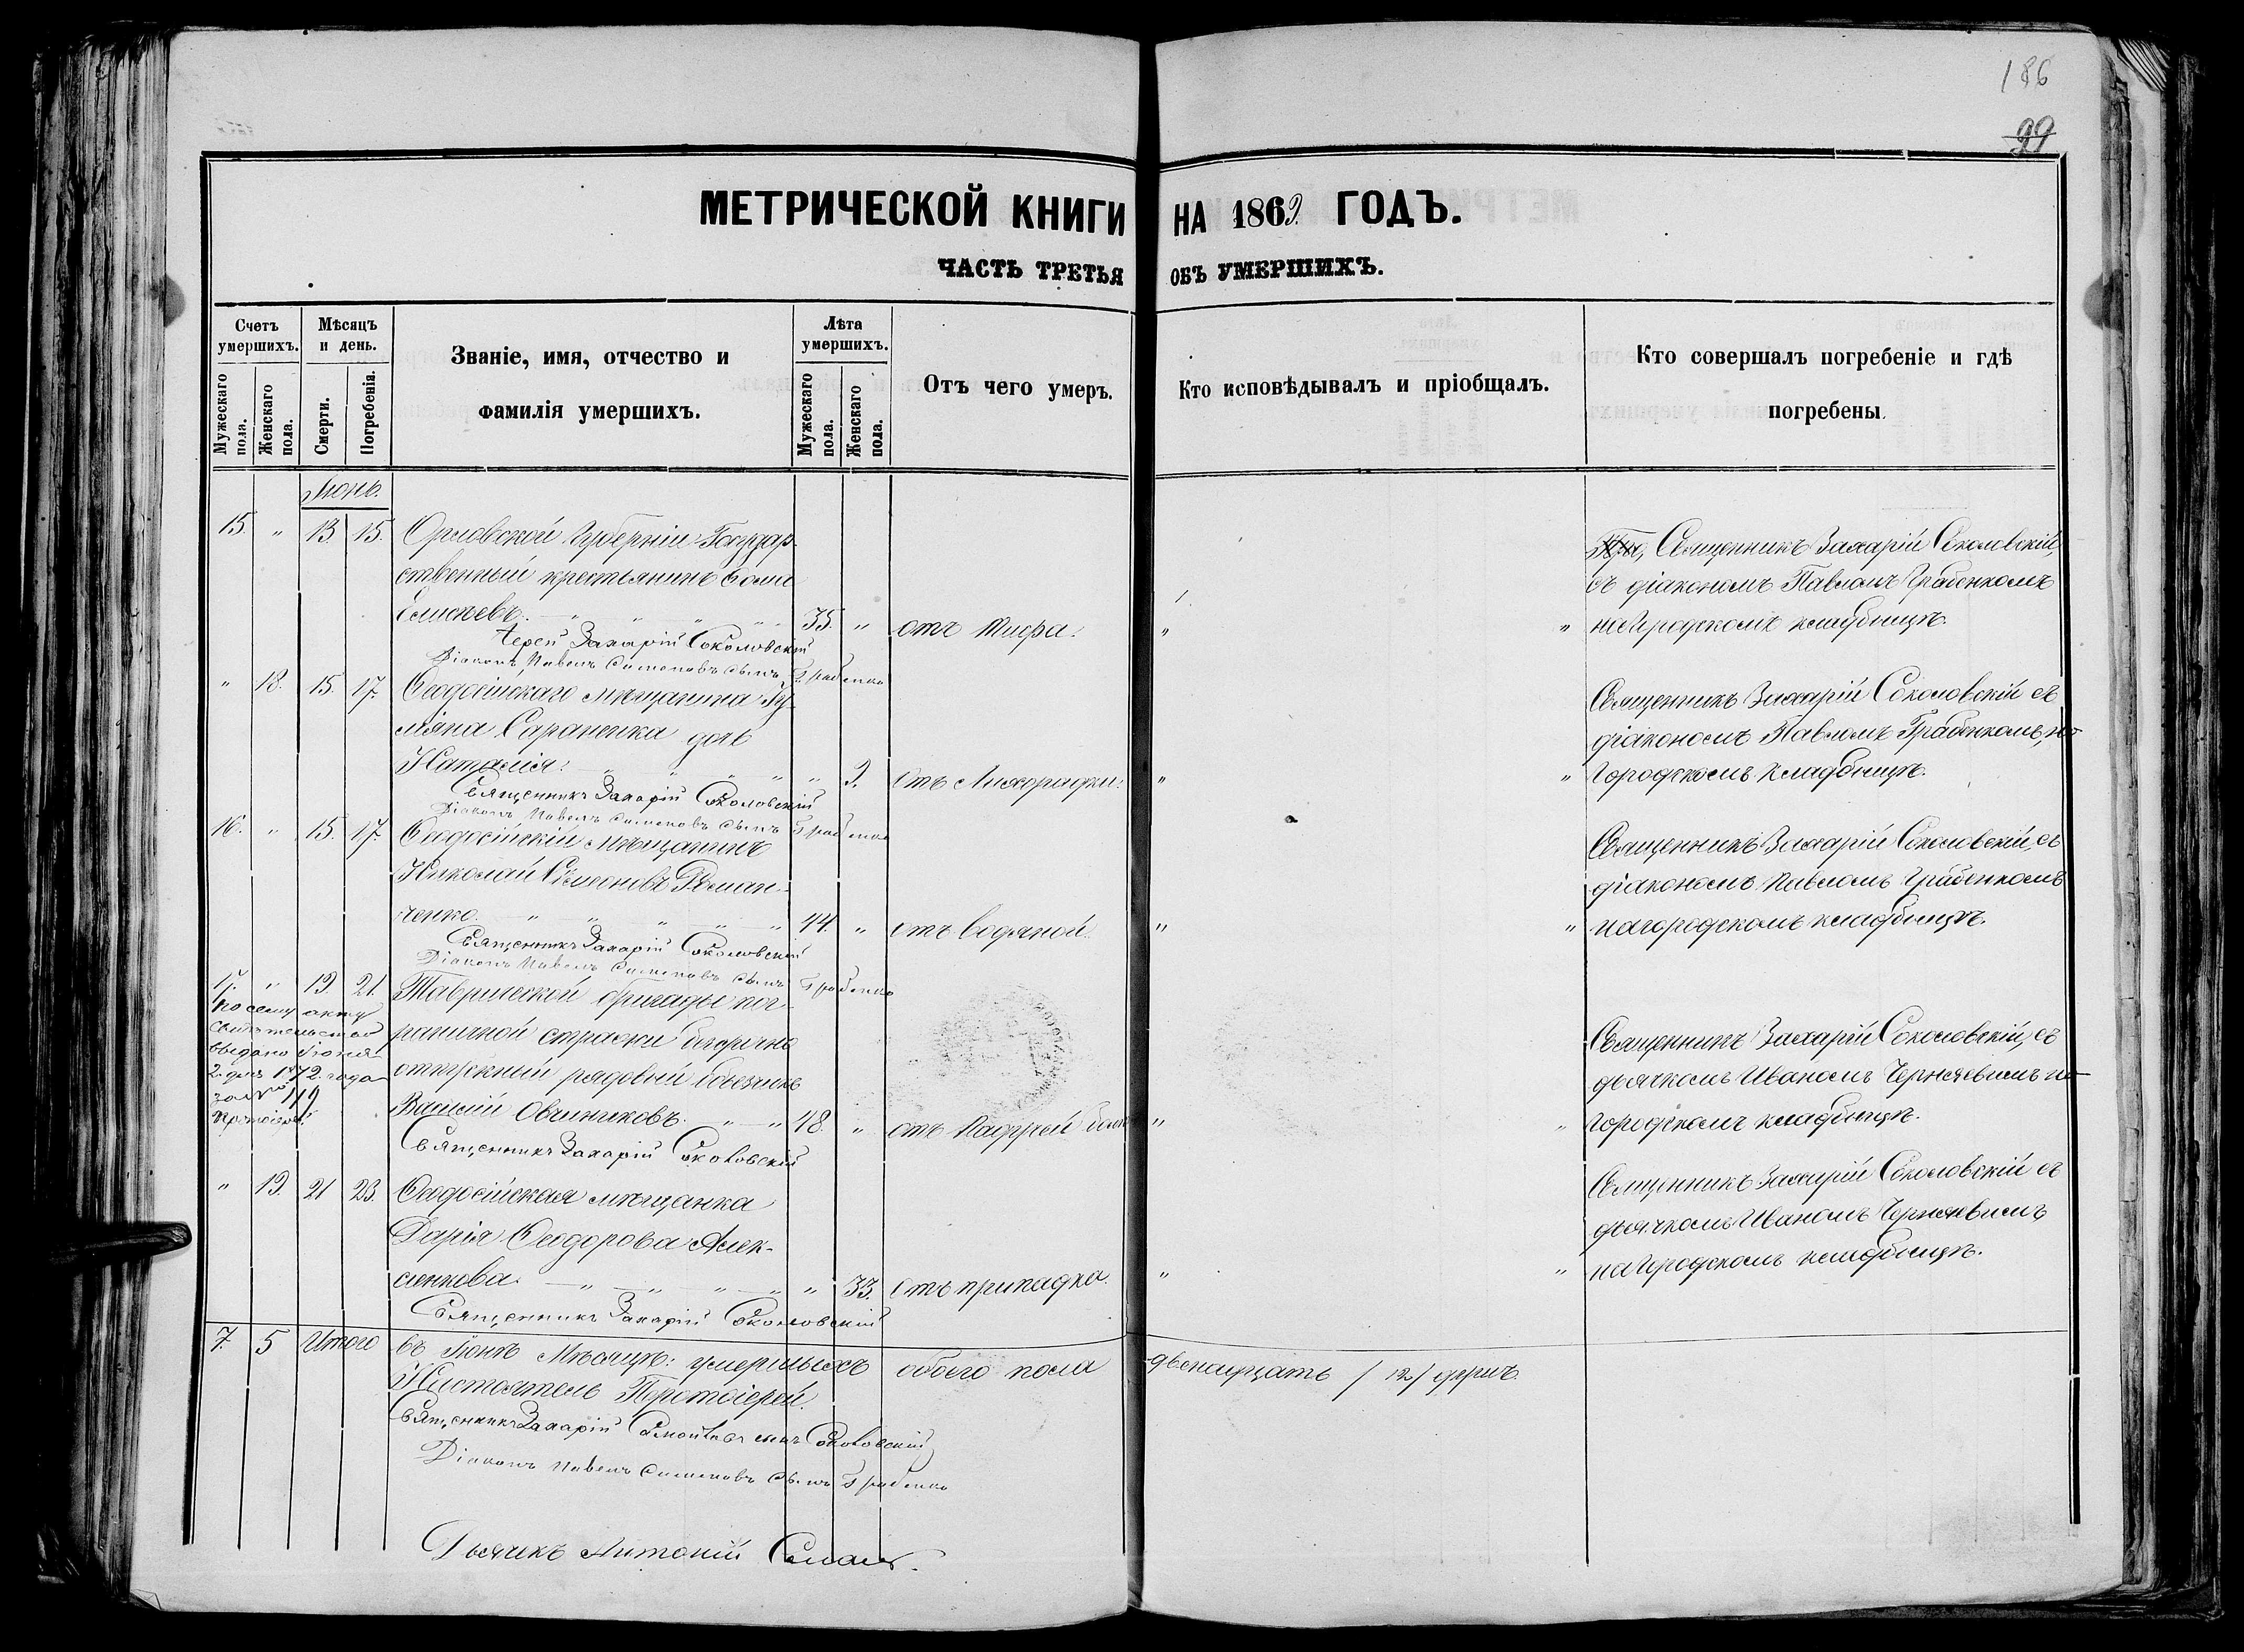 186
99
МЕТРИЧЕСКОЙ КНИГИ НА 1869. ГОДЪ.
ЧАСТЬ ТРЕТЬЯ ОБЪ УМЕРШИХЪ.
Счетъ умершихъ.
Мужескаго пола.
Женскаго пола.
Мѣсяцъ и день.
Смерти.
Погребенія.
Званіе, имя, отчество и
фамилія умершихъ.
Лѣта умершихъ.
Мужескаго пола.
Женскаго пола.
Отъ чего умеръ.
Кто исповѣдывалъ и пріобщалъ.
Кто совершалъ погребеніе и гдѣ
погребены.
Іюнь.
15. " 13. 15. Орловской Губерніи Государ-
ственный крестьянинъ
Елисѣевъ. 35. " отъ тифа. "
Іерей Захарій Соколовскій
Діаконъ Павелъ Симеоновъ сынъ Грабенко
Священникъ Захарій Соколовскій,
съ діакономъ Павломъ Грабенкомъ
на Городскомъ кладбищѣ.
" 18. 15. 17. Ѳеодосійскаго мѣщанина
Саранчика дочь
Наталія. " 9. отъ Лихорадки. "
Священникъ Захарій Соколовскій
Діаконъ Павелъ Симеоновъ сынъ Грабенко
Священникъ Захарій Соколовскій съ
діакономъ Павломъ Грабенкомъ, на
Городскомъ кладбищѣ.
16. " 15. 17. Ѳеодосійскій мѣщанинъ
Николай Симеоновъ Роман-
ченко. 44. " отъ водяной. "
Священникъ Захарій Соколовскій
Діаконъ Павелъ Симеоновъ сынъ Грабенко
Священникъ Захарій Соколовскій, съ
діакономъ Павломъ Грабенкомъ
на городскомъ кладбищѣ.
17. " 19. 21. Таврической бригады пог-
раничной стражи безсрочно
отпускный рядовый
Василій Овчинниковъ. 48. " отъ "
Священникъ Захарій Соколовскій
По сему акту
свидѣтельство
выдано Іюня
2. дня 1872. года
за № 119
Протоіерей
Священникъ Захарій Соколовскій, съ
дьячкомъ Иваномъ Чернявимъ на
Городскомъ кладбищѣ.
" 19. 21 23. Ѳеодосійская мѣщанка
Дарія Ѳеодорова Алек-
сѣенкова. " 33. отъ припадка. "
Священникъ Захарій Соколовскій
Священникъ Захарій Соколовскій съ
дьячкомъ Иваномъ Чернявимъ
на Городскомъ кладбищѣ.
7. 5 Итого въ Іюнѣ Мѣсяцѣ: умершихъ обоего пола двенадцать /12/ душъ.
Настоятель Протоіерей.
Священникъ Захарій сынъ Соколовскій
Діаконъ Павелъ Симеоновъ сынъ Грабенко
Дьячекъ Антоній